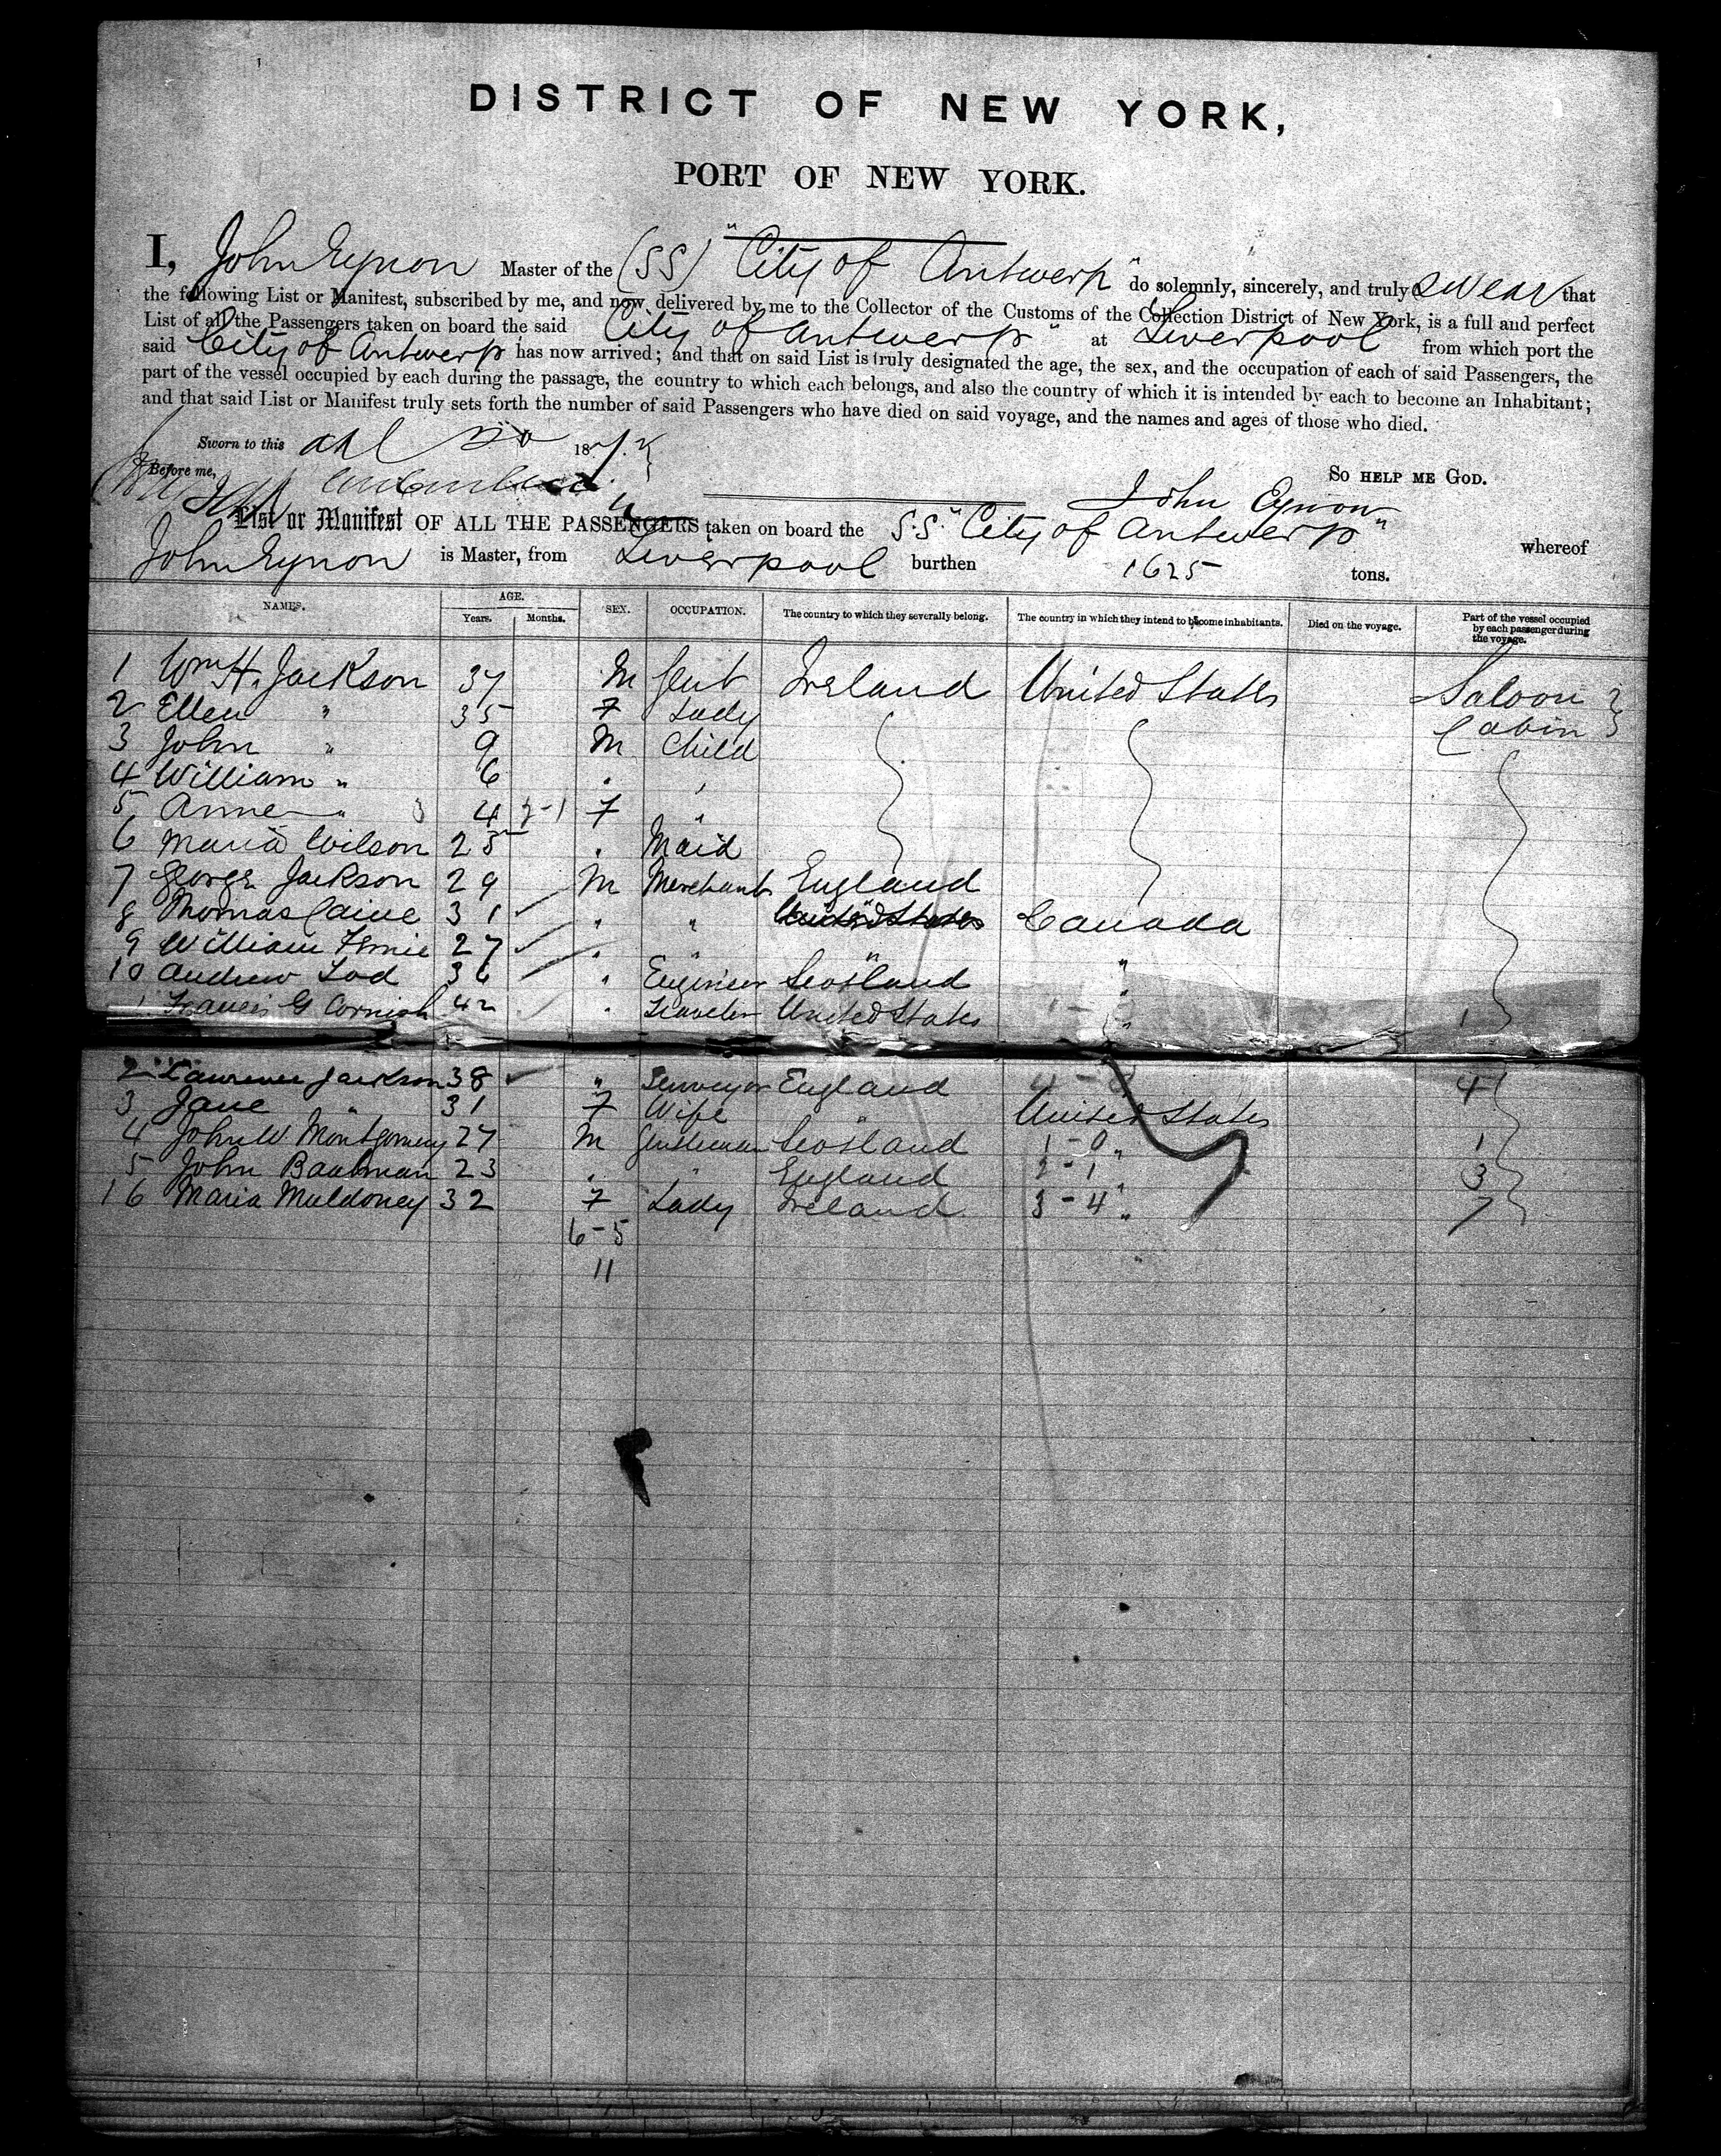 DISTRICT OF NEW YORK,
PORT OF NEW YORK.
I, John Eynon Master of the (SS) "City of Antwerp" do solemnly, sincerely, and truly swear that
the following List or Manifest, subscribed by me, and now delivered by me to the Collector of the Customs of the Collection District of New York, is a full and perfect
List of all the Passengers taken on board the said City of Antwerp" at Liverpool from which port the
said City of Antwerp has now arrived; and that on said List is truly designated the age, the sex, and the occupation of each of said Passengers, the
part of the vessel occupied by each during the passage, the country to which each belongs, and also the country of which it is intended by each to become an Inhabitant;
and that said List or Manifest truly sets forth the number of said Passengers who have died on said voyage, and the names and ages of those who died.
Sworn to this 187
Before me,
So HELP ME GOD.
John Eynon
List or Manifest OF ALL THE PASSENGERS taken on board the S.S. "City of Antwerp" whereof
John Eynon is Master, from Liverpool burthen 1625 tons.
NAMES. AGE. Years. Months. SEX. OCCUPATION. The country to which they severally belong. The country in which they intend to become inhabitants. Died on the voyage. Part of the vessel occupied by each passenger during the voyage.
1 Wm H. Jackson 37 M Gent Ireland United States Saloon
2 Ellen " 35 F Lady Cabin
3 John " 9 M Child
4 William " 6 " "
5 Anne " 4 3-1 F "
6 Maria Wilson 25 " Maid
7 George Jackson 29 M Merchant England
8 Thomas Caine 31 " " United States Canada
9 William Fernie 27 " " "
10 Andrew Tod 36 " Engineer Scotland "
1 Francis G Cornish 42 " Traveler United States " 1
2 Lawrence Jackson 38 " Surveyor England 4
3 Jane " 31 F Wife United States
4 John W Montgomery 27 M Gentleman Scotland 1-0 " 1
5 John Bauman 23 " " England 2-1 " 3
16 Maria Muldoney 32 F Lady Ireland 3-4 " 7
6-5
11